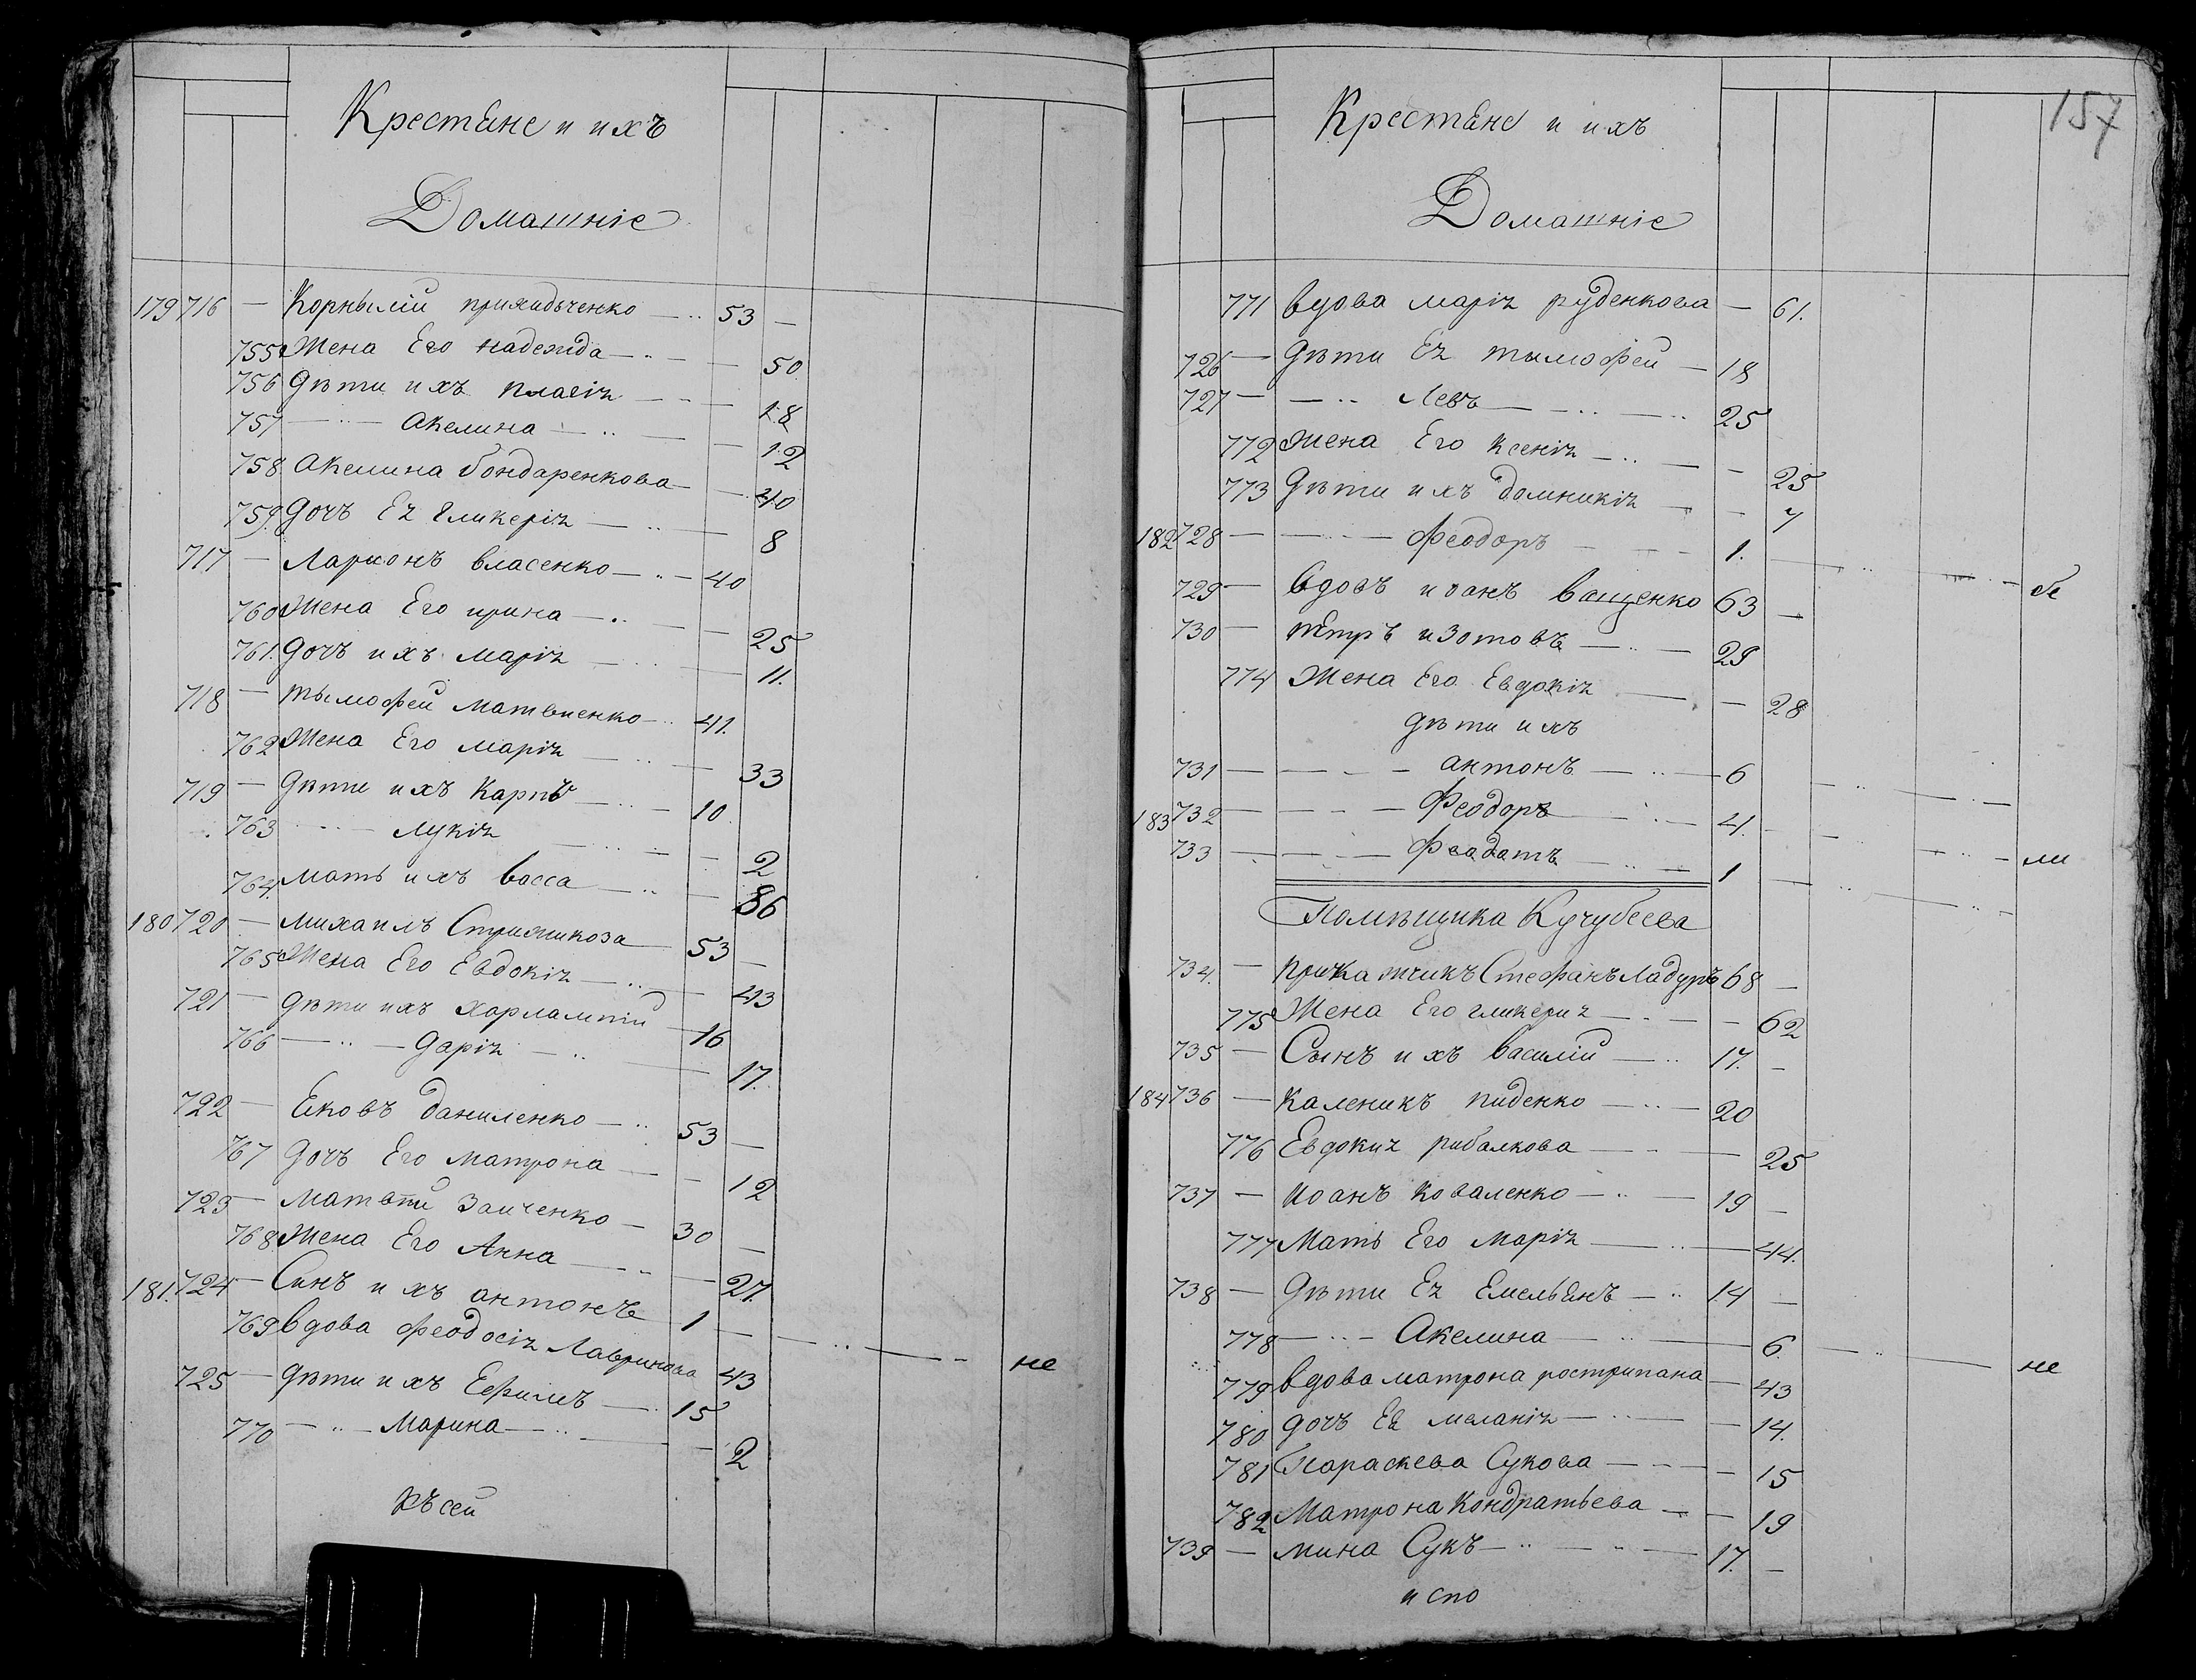 Крестѣне и ихъ
Домашніе
179 716 — Корнылій 53 —
755 Жена Его надежда — 50
756 Дѣти ихъ — 18
757 — Акелина — 12
758 Акелина бондаренкова — 40
759 Дочъ Ея гликерія — 8
717 — Ларионъ власенко — 40
760 Жена Его ирина — 25
761. Дочъ ихъ марія — 11.
718 — тымофей матвиенко — 41.
762 Жена Его марія — 33
719 — Дѣти ихъ Карпъ — 10
763 — лукія — 2
764. мать ихъ васса — 86
180 720 — михаилъ Стрижикоза 53 —
765 Жена Его Евдокія — 43
721 — Дѣти ихъ харлампій — 16
766 — Дарія — 17.
722 — Ѣковъ даниленко — 53 —
767 Дочъ Его матрона — 12
723 — матвѣй Заиченко — 30 —
768 Жена Его Анна — 27.
181. 724 — Синъ ихъ антонъ 1 — не
769 вдова феодосія Лавринова 43
725 — Дѣти ихъ Ефимъ — 15
770 — Марина — 2
рѣсей
157
Крестѣне и ихъ
Домашніе
771 вдова марія руденкова — 61.
726 — Дѣти Ея тымофей — 18
727 — Левъ — 25
772 Жена Его ксенія — 25
773 Дѣти ихъ домникія — 7
182 728 — феодоръ — 1.
729 — вдовъ иоанъ ващенко 63 —
730 — петръ изотовъ — 29
774 Жена Его Евдокія — 28
дѣти ихъ
731 — антонъ — 6
183 732 — Феодоръ — 4. — ли
733 — Феодатъ — 1
Помѣщика Кучубеева
734. — прикатчикъ Стефанъ Ладуръ 68 —
775 Жена Его гликерия — 62
735 — Сынъ ихъ василій — 17. —
184 736 — каленикъ пиденко — 20
776 Евдокия рибалкова — 25
737 — иоанъ коваленко — 19 —
777 Мать Его марія — 44.
738 — Дѣти Ея Емельѣнъ — 14 —
778 — Акелина — 6. — не
779 вдова матрона рострипана — 43
780 дочъ Ея меланія — 14.
781 Параскева Сукова — 15
782 Матрона Кондратьева — 19
739 — мина Сукъ — 17. —
и спо